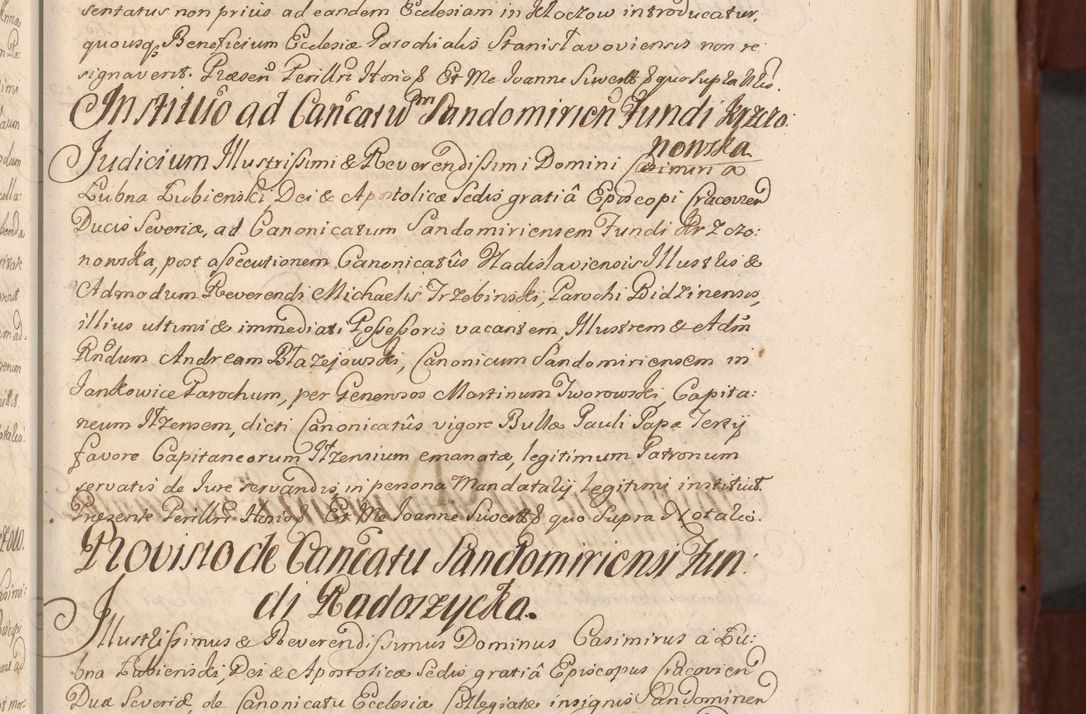 sentatus non prius ad eandem Ecclesiam in Kłoczow introducatur,
quousq; Beneficium Ecclesiæ Parochialis Stanisławoviensis non re
signaverit. Præsen Perillri Honor & Et Me Joanne Suwert & quo supra Nrio.
Institutio ad Canćatum Sandomirień Fundi Krzczo:
nowska.
Judicium Illustrissimi & Reverendissimi Domini Casimiri a
Łubna Łubienski Dei & Apostolicæ Sedis gratiâ Episcopi Cracovien
Ducis Severiæ, ad Canonicatum Sandomiriensem Fundi Krzczo:
nowska, post assecutionem Canonicatûs Wladislaviensis Illustris &
Admodum Reverendi Michaelis Trzebinski, Parochi Bidzinensis,
illius ultimi & immediati Possessoris vacantem, Illustrem & Adm
Rndum Andream Błażejowski, Canonicum Sandomiriensem in
Jankowice Parochum, per Generosos Martinum Tworowski, Capita:
neum Iłżensem, dicti Canonicatûs vigore Bullæ Pauli Papæ Tertij
favore Capitaneorum Iłżensium emanatæ, legitimum Patronum
servatis de Jure servandis, in persona Mandatarij legitimi instituit.
Præsente Perillri Honor & Et Me Joanne Suwert & quo Supra Notario.
Provisio de Canćatu Sandomiriensi Fun:
di Radoszycka.
Illustrissimus & Reverendissimus Dominus Casimirus a Łu:
bna Łubienski, Dei & Apostolicæ Sedis gratiâ Episcopus Cracovien
Dux Severiæ, de Canonicatu Ecclesiæ Collegiatæ insignis Sandomirien